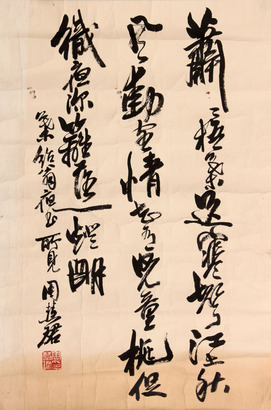 蕭〻梧葉送寒聲江上秋
風動客情知有兒童挑促
織夜深籬落一燈明
葉紹翁夜書所見 周慧珺